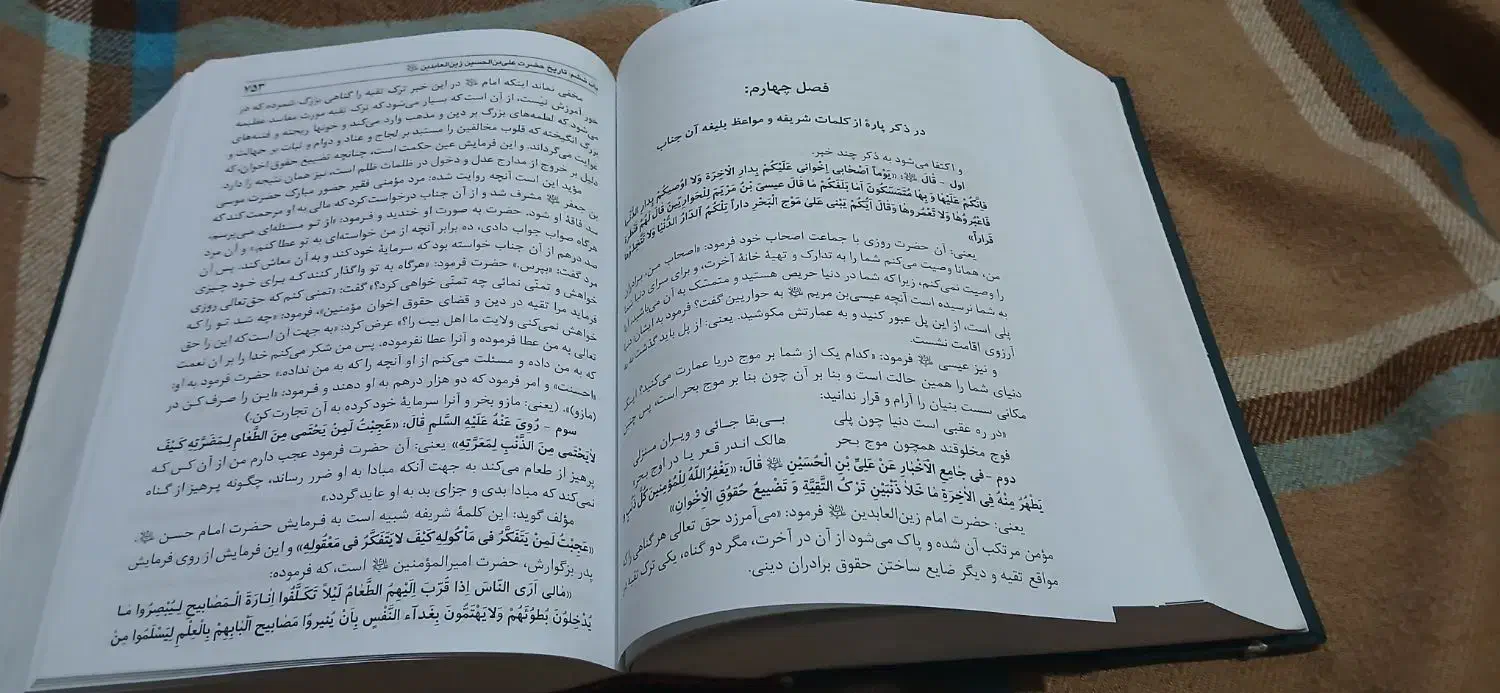 فصل چهارم:
در ذکر پارهٔ از کلمات شریفه و مواعظ بلیغه آن جناب
و اکتفا می‌شود به ذکر چند خبر.
اول - قالَ ﷷ: «یَوْماً اَصْحابی اِخْوانی عَلَیْکُمْ بِدارِ الْآخِرَةِ وَلا اوُصیکُمْ بِدارِ الدُّنْیا
فَاِنَّکُمْ عَلَیْها وَ بِها مُتَمَسِّکُونَ اَما بَلَغَکُمْ ما قالَ عیسَی بْنُ مَرْیَمَ لِلْحَوارِیّینَ قالَ لَهُمْ قَنْطَرَةٌ
فَاعْبُرُوها وَلا تَعْمُرُوها وَقالَ اَیُّکُمْ یَبْنی عَلیٰ مَوْجِ الْبَحْرِ داراً تِلْکُمُ الدّارُ الدُّنْیا وَلا تَتَّخِذُوها
قَراراً»
یعنی: آن حضرت روزی با جماعت اصحاب خود فرمود: «اصحاب من، برادران
من، همانا وصیت می‌کنم شما را به تدارک و تهیهٔ خانهٔ آخرت، و برای سرای دنیا شما
را وصیت نمی‌کنم، زیرا که شما در دنیا حریص هستید و متمسّک به آن می‌باشید، آیا
به شما نرسیده است آنچه عیسی‌بن مریم ﷷ به حواریین گفت؟ فرمود به ایشان: دنیا
پلی است، از این پل عبور کنید و به عمارتش مکوشید. یعنی: از پل باید گذشت نه به
آرزوی اقامت نشست.
و نیز عیسی ﷷ فرمود: «کدام یک از شما بر موج دریا عمارت می‌کنید؟ اینک
دنیای شما را همین حالت است و بنا بر آن چون بنا بر موج بحر است، پس چنین
مکانی سست بنیان را آرام و قرار ندانید:
«در ره عقبی است دنیا چون پلی بی‌بقا جائی و ویران منزلی
فوج مخلوقند همچون موج بحر هالک اندر قعر یا در اوج بحر»
دوم - فی جامِعِ الْاَخْبارِ عَنْ عَلیِّ بْنِ الْحُسَیْنِ ﷷ قالَ: «یَغْفِرُ اللهُ لِلْمُؤمِنینَ کُلَّ ذَنْبٍ وَ
یَطْهُرُ مِنْهُ فِی الْآخِرَةِ ما خَلا ذَنْبَیْنِ تَرْکَ التَّقِیَّةِ وَ تَضْییعَ حُقُوقِ الْاِخْوانِ»
یعنی: حضرت امام زین‌العابدین ﷷ فرمود: «می‌آمرزد حق تعالی هر گناهی را که
مؤمن مرتکب آن شده و پاک می‌شود از آن در آخرت، مگر دو گناه، یکی ترک تقیه در
مواقع تقیه و دیگر ضایع ساختن حقوق برادران دینی.
باب ششم، تاریخ حضرت علی‌بن‌الحسین زین‌العابدین ﷷ ۷۵۳
مخفی نماند اینکه امام ﷷ در این خبر ترک تقیه را گناهی بزرگ شمرده که در
خور آمرزش نیست، از آن است که بسیار می‌شود که ترک تقیه مورث مفاسد عظیمه
می‌شود که لطمه‌های بزرگ بر دین و مذهب وارد می‌کند و خونها ریخته و فتنه‌های
بزرگ انگیخته که قلوب مخالفین را مستبد بر لجاج و عناد و دوام و ثبات بر جهالت و
غوایت می‌گرداند. و این فرمایش عین حکمت است، چنانچه تضییع حقوق اخوان، که
دلیل بر خروج از مدارج عدل و دخول در ظلمات ظلم است، نیز همان نتیجه را دارد.
مؤید این است آنچه روایت شده: مرد مؤمنی فقیر حضور مبارک حضرت موسی
بن جعفر ﷷ مشرف شد و از آن جناب درخواست کرد که مالی به او مرحمت کند که
سد فاقهٔ او شود. حضرت به صورت او خندید و فرمود: «از تو مسئله‌ای می‌پرسم،
هرگاه صواب جواب دادی، ده برابر آنچه از من خواسته‌ای به تو عطا کنم.» و آن مرد
صد درهم از آن جناب خواسته بود که سرمایهٔ خود کند و به آن معاش کند. پس آن
مرد گفت: «بپرس.» حضرت فرمود: «هرگاه به تو واگذار کنند که برای خود چیزی
خواهش و تمنّی نمائی چه تمنّی خواهی کرد؟» گفت: «تمنی کنم که حق‌تعالی روزی
فرماید مرا تقیه در دین و قضای حقوق اخوان مؤمنین»، فرمود: «چه شد تو را که
خواهش نمی‌کنی ولایت ما اهل بیت را؟» عرض کرد: «به جهت آن است که این را حق
تعالی به من عطا فرموده و آنرا عطا نفرموده، پس من شکر می‌کنم خدا را بر آن نعمت
که به من داده و مسئلت می‌کنم از او آنچه را که به من نداده.» حضرت فرمود به او:
«احسنت» و امر فرمود که دو هزار درهم به او دهند و فرمود: «این را صرف کن در
(مازو)». (یعنی: مازو بخر و آنرا سرمایهٔ خود کرده به آن تجارت کن.)
سوم - رُوِیَ عَنْهُ عَلَیْهِ السَّلم قالَ: «عَجِبْتُ لِمَنْ یَحْتَمی مِنَ الطَّعامِ لِمَضَرَّتِهِ کَیْفَ
لایَحْتَمی مِنَ الذَّنْبِ لِمَعَرَّتِهِ» یعنی: آن حضرت فرمود عجب دارم من از آن کس که
پرهیز از طعام می‌کند به جهت آنکه مبادا به او ضرر رساند، چگونه پرهیز از گناه
نمی‌کند که مبادا بدی و جزای بد به او عاید گردد.»
مؤلف گوید: این کلمهٔ شریفه شبیه است به فرمایش حضرت امام حسن ﷷ.
«عَجِبْتُ لِمَنْ یَتَفَکَّرُ فی مَأْکُولِهِ کَیْفَ لا یَتَفَکَّرُ فی مَعْقُولِهِ» و این فرمایش از روی فرمایش
پدر بزگوارش، حضرت امیرالمؤمنین ﷷ است، که فرموده:
«مٰالی اَرَی النّاسَ اِذا قَرَّبَ اِلَیْهِمُ الطَّعٰامُ لَیْلاً تَکَلَّفُوا اِنارَةَ الْمَصابیحِ لِیُبْصِرُوا ما
یُدْخِلوُنَ بُطُونَهُمْ وَلا یَهْتَمُّونَ بِغَداءِ النَّفْسِ بِاَنْ یُنیروُا مَصابیحَ اَلْبابِهِمْ بِالْعِلْمِ لِیَسْلَمُوا مِنْ